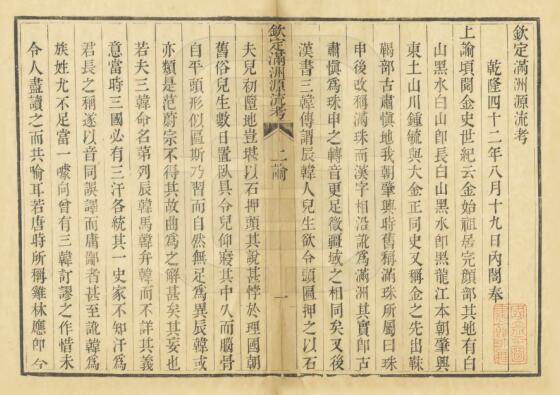 欽定滿洲源流考
乾隆四十二年八月十九日內閣奉
上諭頃閱金史世紀云金始祖居完顏部其地有白
山黑水白山即長白山黑水即黑龍江本朝肇興
東土山川鍾毓與大金正同史又稱金之先出靺
鞨部古肅慎地我朝肇興時舊稱滿珠所屬曰珠
申後改稱滿珠而漢字相沿訛為滿洲其實即古
肅慎為珠申之轉音更足徵疆域之相同矣又後
漢書三韓傳謂辰韓人兒生欲令頭匾押之以石
欽定滿洲源流考
上諭
一
夫兒初墮地豈堪以石押頭其說甚悖於理國朝
舊俗兒生數日置臥具令兒仰寢其中久而腦骨
自平頭形似匾斯乃習而自然無足為異辰韓或
亦類是范蔚宗不得其故曲為之解甚矣其妄也
若夫三韓命名第列辰韓馬韓弁韓而不詳其義
意當時三國必有三汗各統其一史家不知汗為
君長之稱遂以音同誤譯而庸鄙者甚至訛韓為
族姓尤不足當一噱向曾有三韓訂謬之作惜未
令人盡讀之而共喻耳若唐時所稱雞林應即今